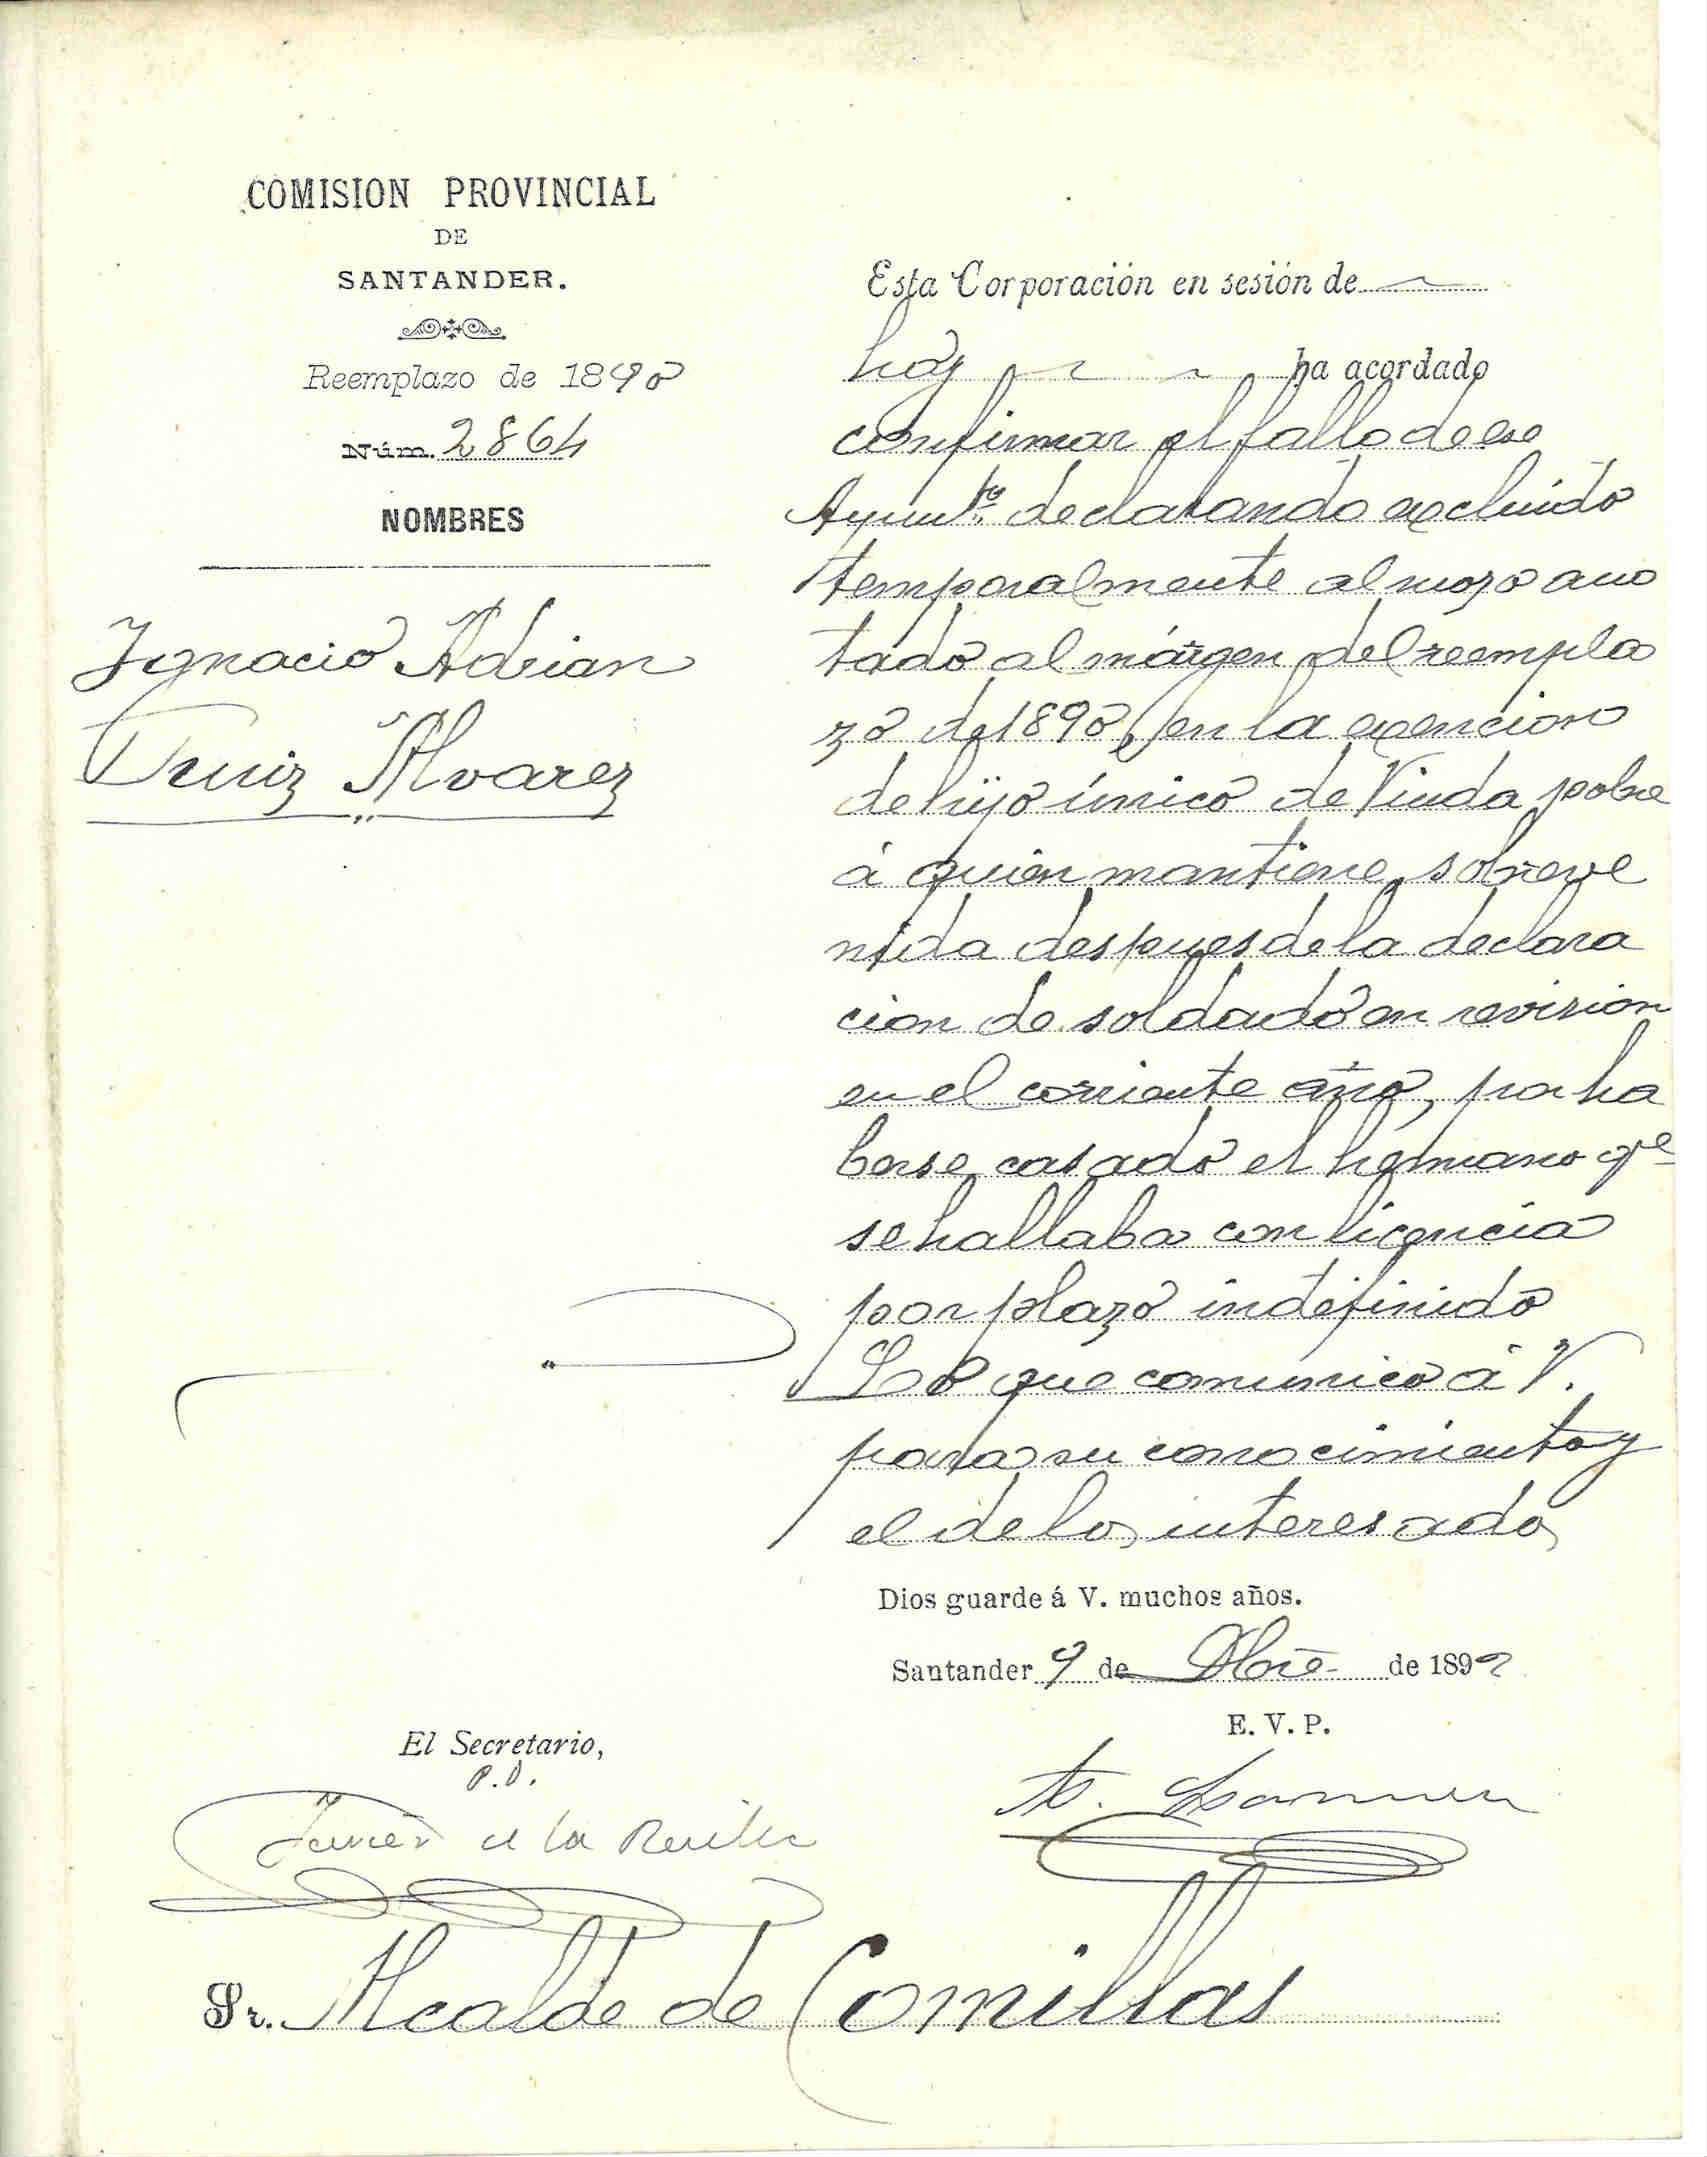 COMISION PROVINCIAL
DE
SANTANDER.
Reemplazo de 1890
Núm. 2864
NOMBRES
Ignacio Adrian
Alvarez
Esta Corporación en sesión de
hoy ha acordado
confirmar el fallo de ese
Ayunto. declarando excluido
temporalmente al mozo ano
tado al márgen del reempla
zo de 1890, en la exencion
de hijo único de Viuda pobre
á quien mantiene, sobreve
nida despues de la declara
cion de soldado en revision
en el corriente año, por ha
berse casado el hermano qe
se hallaba con licencia
por plazo indefinido
Lo que comunico á V.
para su conocimiento y
el de los interesados
Dios guarde á V. muchos años.
Santander 9 de Dbre de 1892
E. V. P.
El Secretario,
P. D.
Javier de la
Sr. Alcalde de Comillas